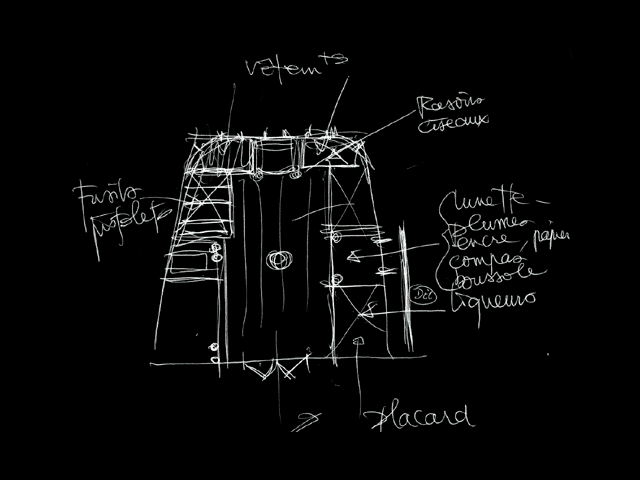 Vêtem^ts
Rasoirs
ciseaux
Fusils
pistolets
lunette -
plumes
encre, papier
compas
boussole
liqueurs
Placard